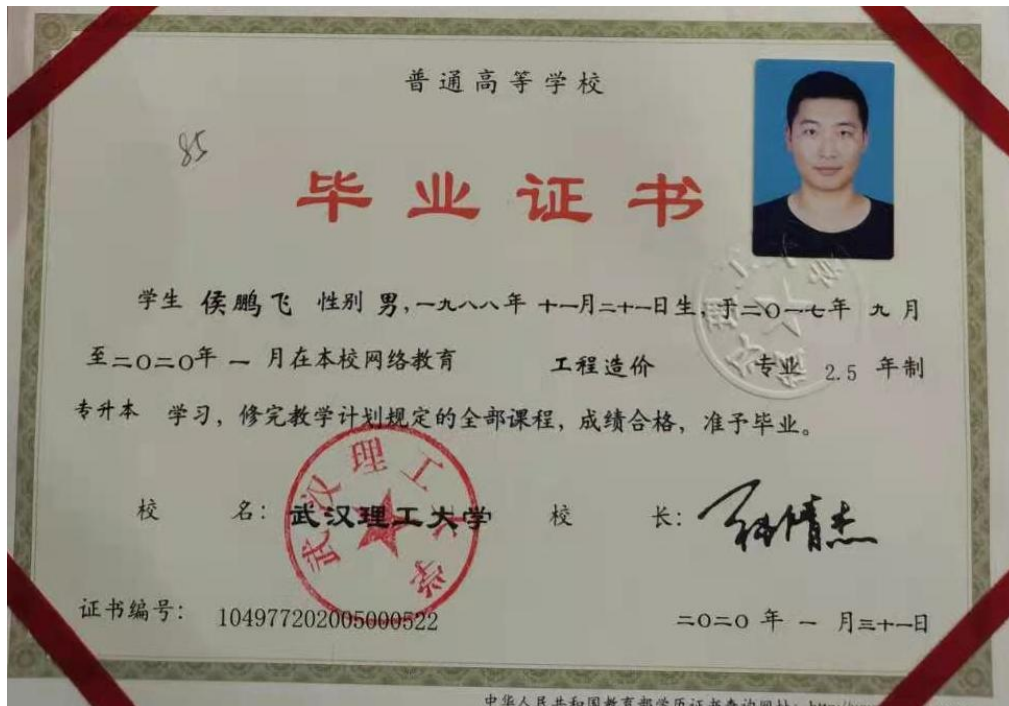 普通高等学校
85
毕业证书
学生 侯鹏飞 性别 男,一九八八年 十一月二十一日生,于二〇一七年 九 月
至二〇二〇年 一 月在本校网络教育 工程造价 专业 2.5 年制
专升本 学习,修完教学计划规定的全部课程,成绩合格,准予毕业。
校 名: 武汉理工大学 校 长:
武汉理工大学
证书编号: 104977202005000522 二〇二〇 年 一 月三十一日
中华人民共和国教育部学历证书查询网址: